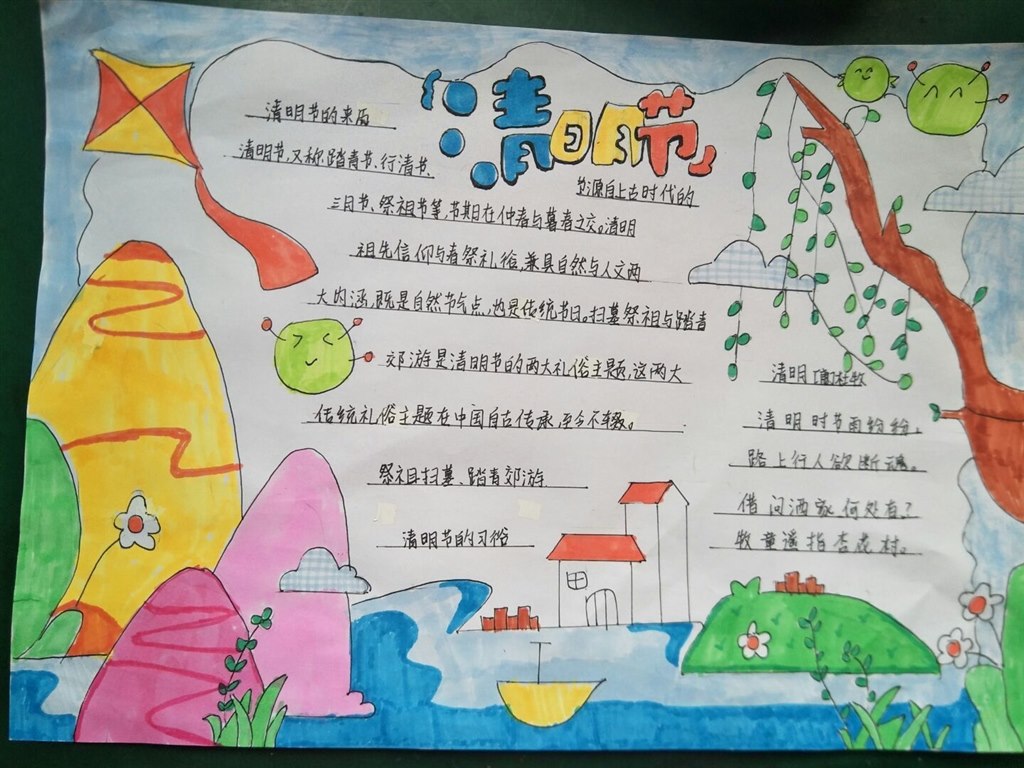 清明节
清明节的来历
清明节,又称踏青节、行清节、
三月节、祭祖节等,节期在仲春与暮春之交。清明
节源自上古时代的
祖先信仰与春祭礼俗,兼具自然与人文两
大内涵,既是自然节气点,也是传统节日。扫墓祭祖与踏青
郊游是清明节的两大礼俗主题,这两大
传统礼俗主题在中国自古传承,至今不辍。
祭祖扫墓、踏青郊游
清明节的习俗
清明 [唐]杜牧
清明时节雨纷纷,
路上行人欲断魂。
借问酒家何处有?
牧童遥指杏花村。